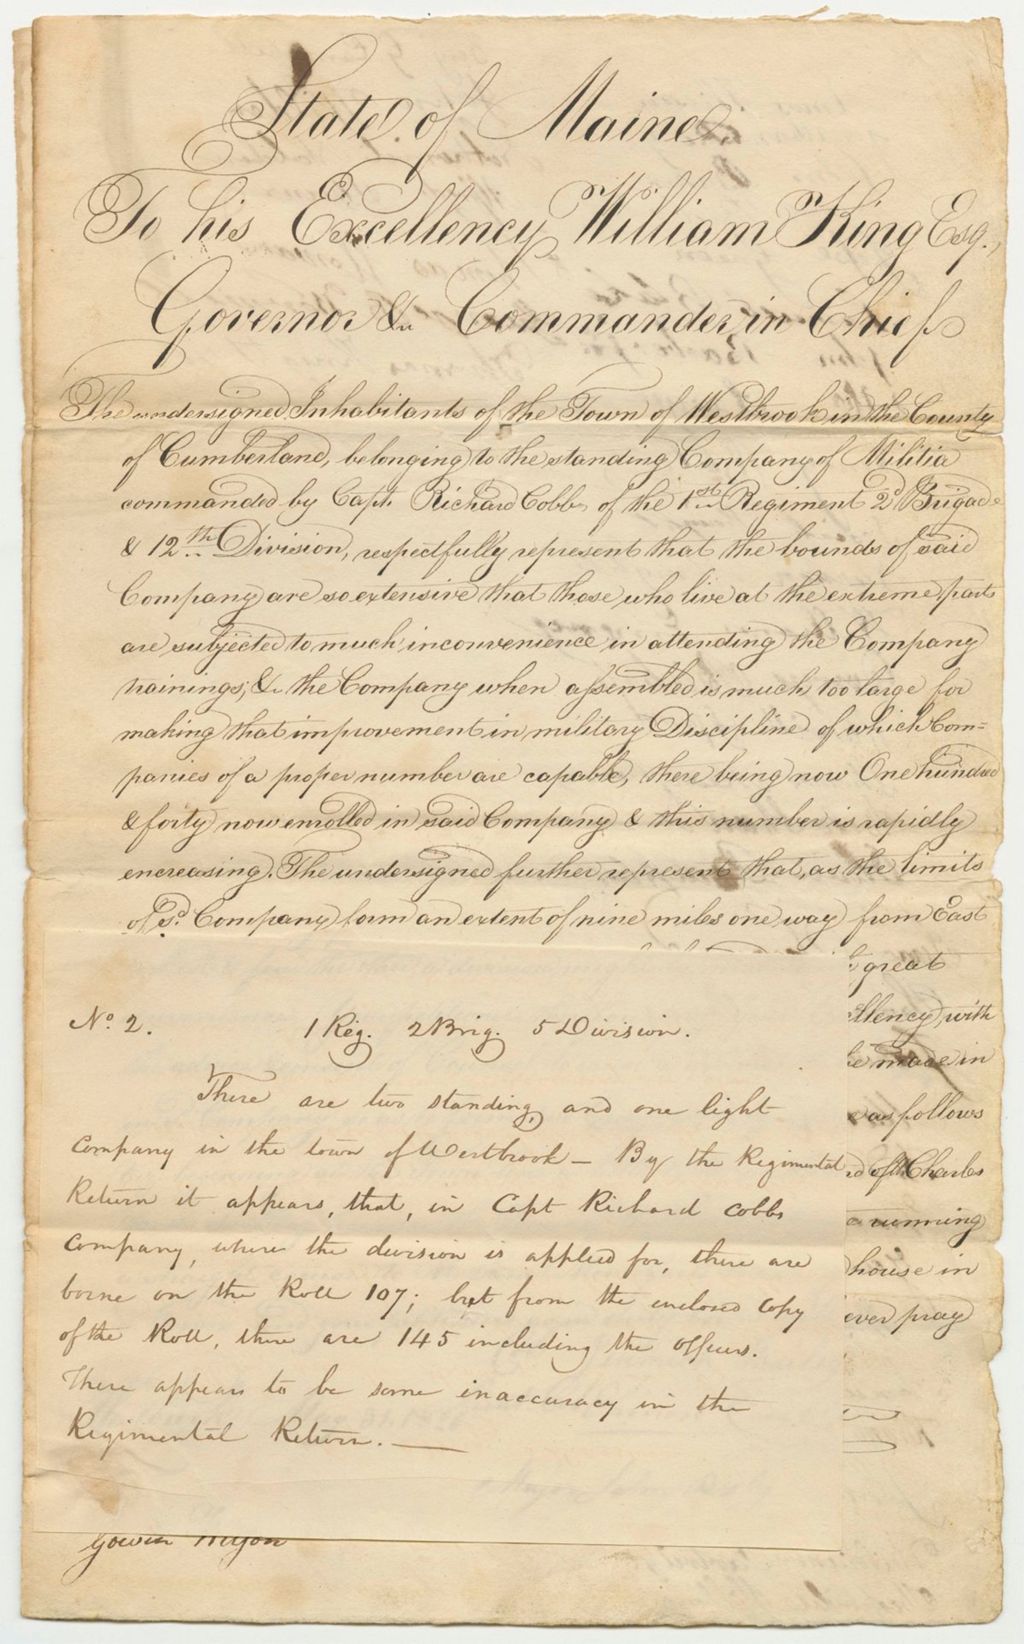 State of Maine.
To his Excellency William King Esq.,
Governor & Commander in Chief
The undersigned Inhabitants of the Town of Westbrook in the County
of Cumberland, belonging to the standing Company of Militia
commanded by Capt. Richard Cobb, of the 1st Regiment 2d Brigade
& 12th Division, respectfully represent that the bounds of said
Company are so extensive that those who live at the extreme parts
are subjected to much inconvenience in attending the Company
trainings; & the Company when assembled is much too large for
making that improvement in military Discipline of which Com=
panies of a proper number are capable, there being now One hundred
& forty now enrolled in said Company & this number is rapidly
encreasing. The undersigned further represent that, as the limits
of sd. Company form an extent of nine miles one way from East
great
llency, with
be made in
as follows
of Charles
running
house in
ever pray
No. 2. 1 Reg. 2 Brig. 5 Division.
There are two standing, and one light
company in the town of Westbrook — By the Regimental
Return it appears, that, in Capt Richard Cobbs
company, where the division is applied for, there are
borne on the Roll 107; but from the enclosed copy
of the Roll, there are 145 including the officers.
There appears to be some inaccuracy in the
Regimental Return. —